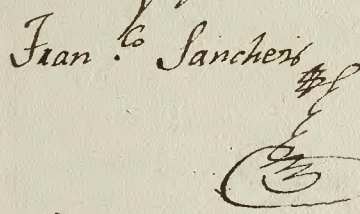 Fran.co Sanchens